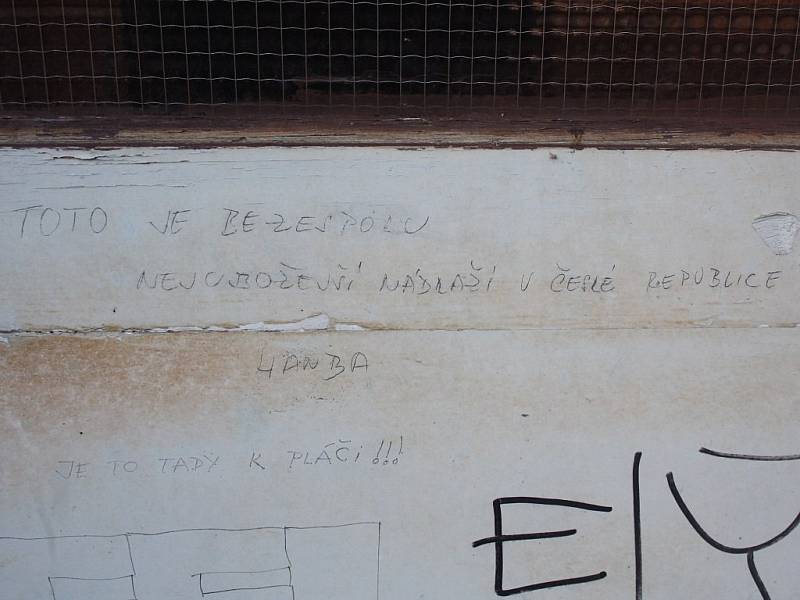 TOTO JE BEZESPORU
NEJUBOŽEJŠÍ NÁDRAŽÍ V ČESKÉ REPUBLICE
HANBA
JE TO TADY K PLÁČI!!!
E